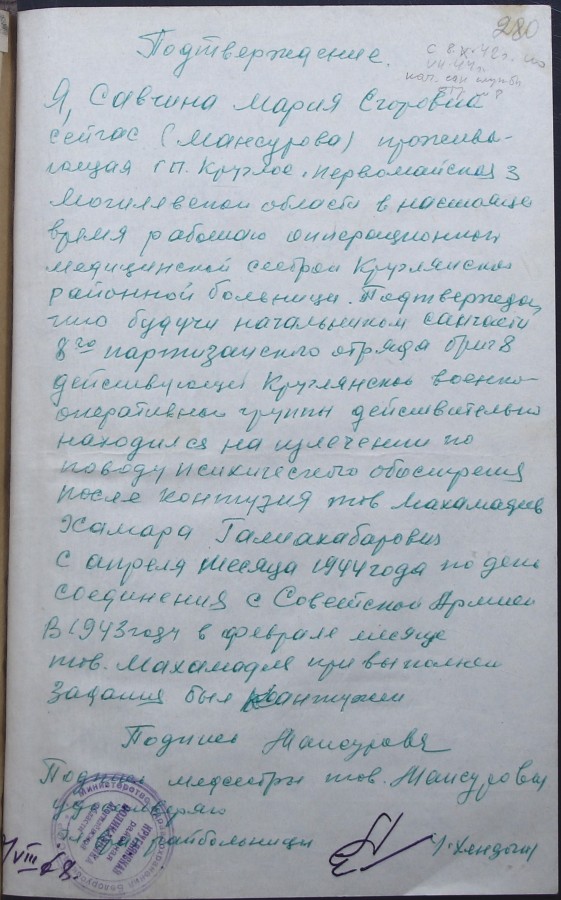 280
Подтверждение.
с 8.X.42г. по
VII.44г.
нач. сан службы
Я, Савчина Мария Егоровна
сейчас (Мансурова) прожива-
ющая г.п. Круглое, Первомайская 3
Могилевской области в настояще
время работаю операционной
медицинской сестрой Круглянской
районной больницы. Подтверждаю
что будучи начальником санчасти
8го партизанского отряда бриг 8
действующей Круглянской военно-
оперативной группы действительно
находился на излечении по
поводу психического обострения
после контузия тов. Махамадиев
Хамара Галиахабарович
с апреля месяца 1944 года по день
соединения с Советской Армией
В 1943 году в феврале месяце
тов. Махамадие при выполнен
задания был контужен
Подпись Мансурова
Подпись медсестры тов. Мансуровой
удостоверяю
райбольницы
VIII 68.